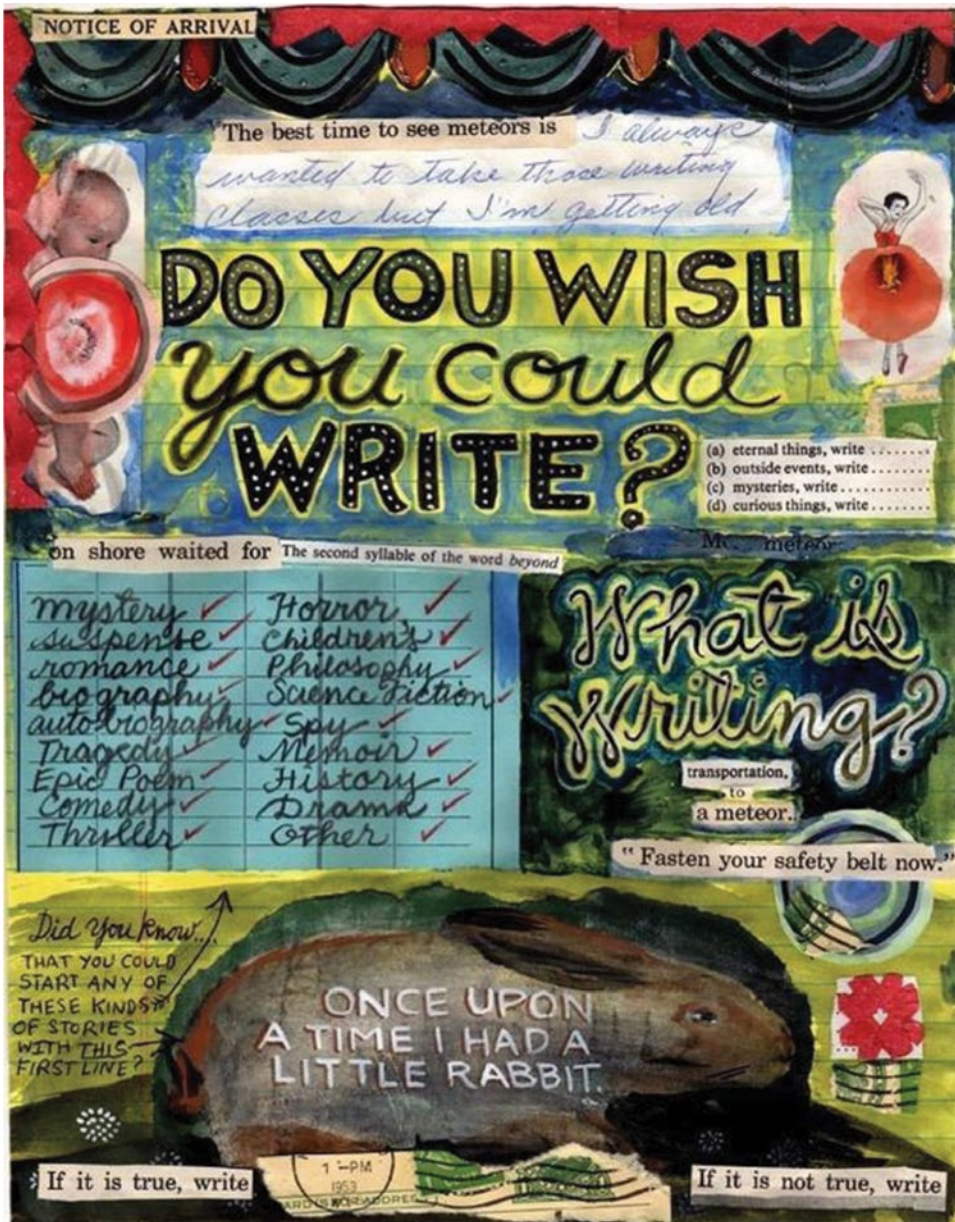 NOTICE OF ARRIVAL
The best time to see meteors is I always
wanted to take those writing
classes but I'm getting old
DO YOU WISH
you could
WRITE?
(a) eternal things, write ........
(b) outside events, write .......
(c) mysteries, write ............
(d) curious things, write ........
on shore waited for The second syllable of the word beyond
meteor
mystery ✓ Horror ✓
suspense ✓ Children's ✓
romance ✓ Philosophy ✓
biography ✓ Science Fiction ✓
autobiography ✓ Spy ✓
Tragedy ✓ Memoir ✓
Epic Poem ✓ History ✓
Comedy ✓ Drama ✓
Thriller ✓ Other ✓
What is
Writing?
transportation,
to
a meteor.
"Fasten your safety belt now."
Did You Know...
THAT YOU COULD
START ANY OF
THESE KINDS
OF STORIES
WITH THIS
FIRST LINE?
ONCE UPON
A TIME I HAD A
LITTLE RABBIT.
If it is true, write
1 -PM
1953
If it is not true, write